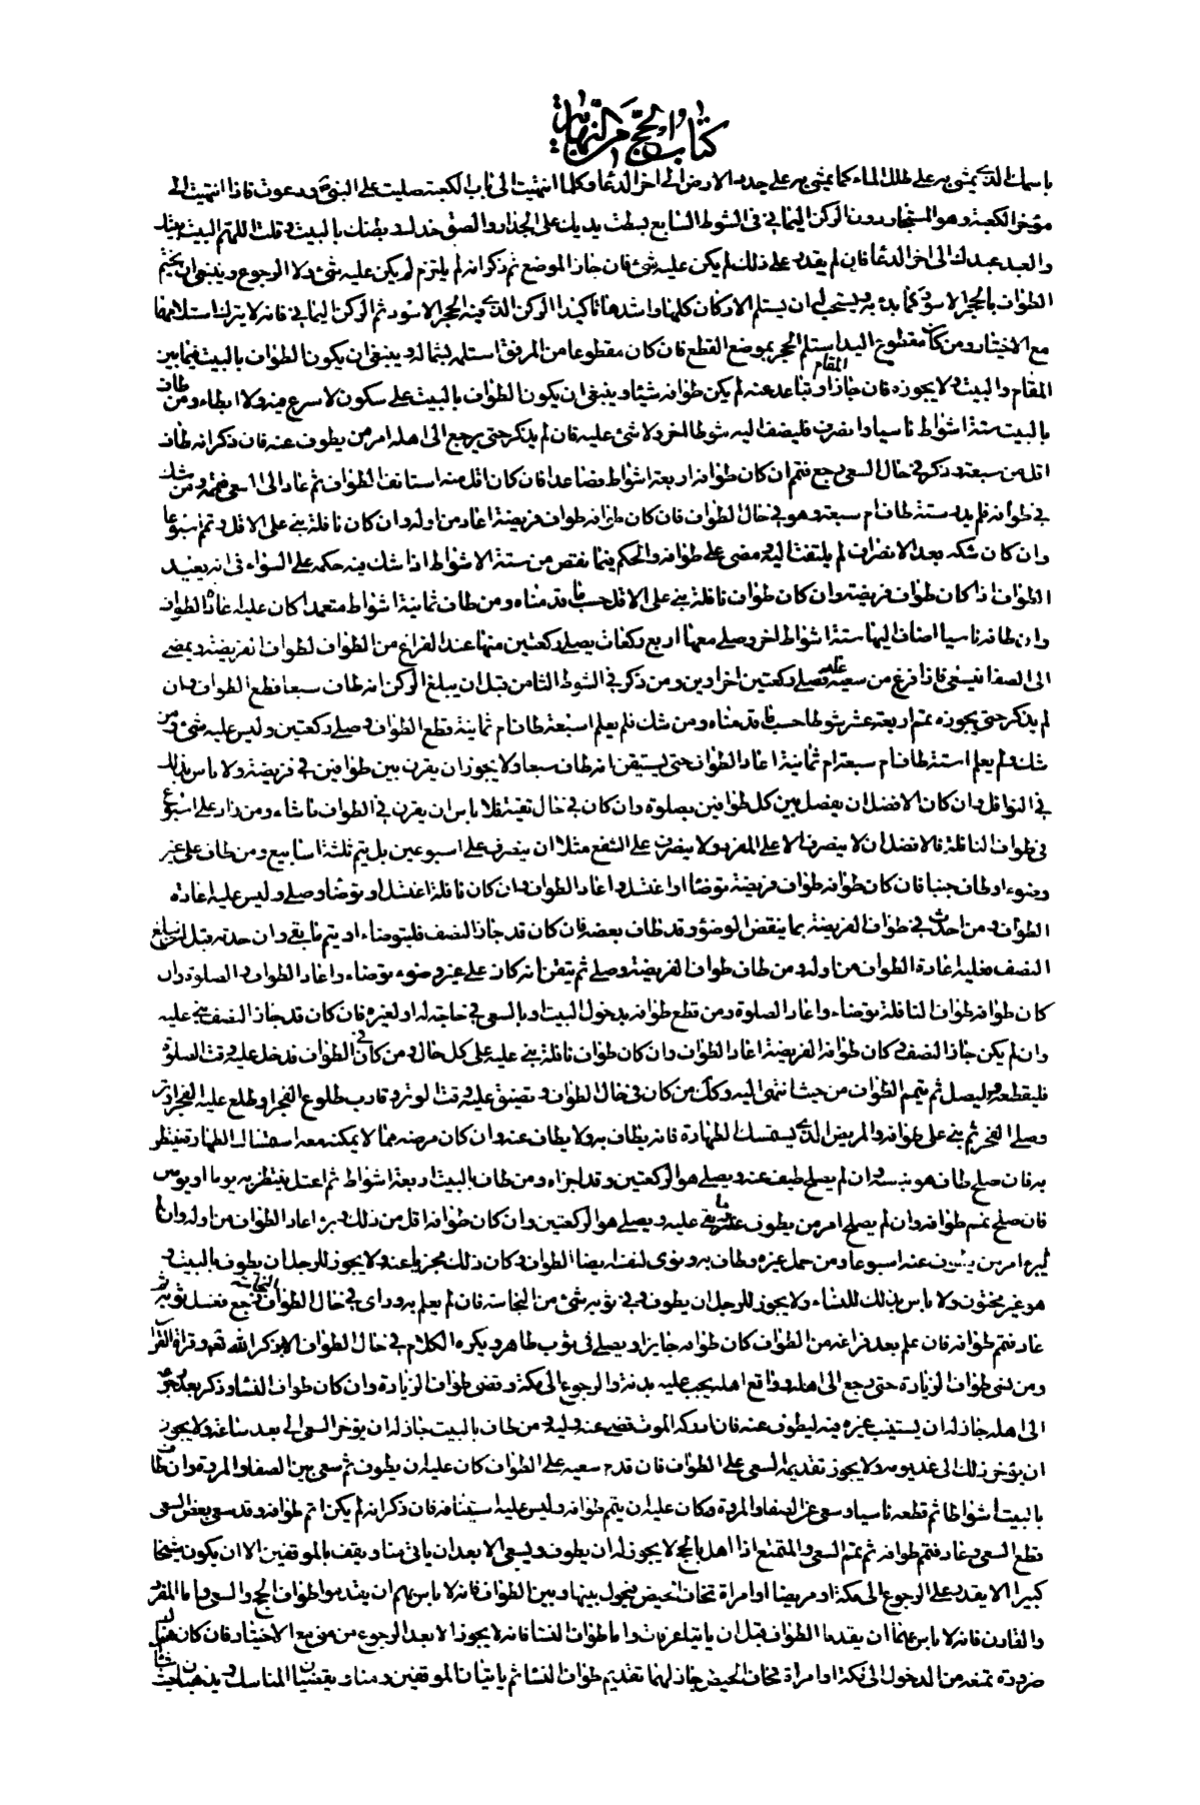 كتاب الحج من النهاية
باسمك الذي يمشي به على طلل الماء كما يمشي به على جدد الارض الى اخر الدعا وكلما انتهيت الى باب الكعبة صليت على النبي ودعوت فاذا انتهيت الى
مؤخر الكعبة وهو المستجار دون الركن اليماني في الشوط السابع بسطت يديك على الجدار والصق خدك وبطنك بالبيت وقلت اللهم البيت بيتك
والعبد عبدك الى اخر الدعا فان لم يقدر على ذلك لم يكن عليه شئ فان جاز الموضع ثم ذكر انه لم يلتزم لم يكن عليه شئ ولا الرجوع وينبغي ان يختم
الطواف بالحجر الاسود كما بدء به ويستحب له ان يستلم الاركان كلها واشدها تاكيدا الركن الذي فيه الحجر الاسود ثم الركن اليماني فانه لا يترك استلامهما
مع الاختيار ومن كان مقطوع اليد استلم الحجر بموضع القطع فان كان مقطوعا من المرفق استلمه بشماله وينبغي ان يكون الطواف بالبيت فيما بين
المقام والبيت ولا يجوزه فان جاز المقام او تباعد عنه لم يكن طوافه شيئا وينبغي ان يكون الطواف بالبيت على سكون لا سرع فيه ولا ابطاء ومن طاف
بالبيت ستة اشواط ناسيا وانصرف فليضف اليه شوطا اخر ولا شئ عليه فان لم يذكر حتى يرجع الى اهله امر من يطوف عنه فان ذكر انه طاف
اقل من سبعة وذكر في حال السعي رجع فتمم ان كان طوافه اربعة اشواط فصاعدا فان كان اقل منه استانف الطواف ثم عاد الى السعي فتممه ومن شك
في طوافه فلم يدر ستة طاف ام سبعة وهو في حال الطواف فان كان طوافه طواف فريضة اعاد من اوله وان كان نافلة بنى على الاقل وتمم اسبوعا
وان كان شكه بعد الانصراف لم يلتفت اليه ومضى على طوافه والحكم فيما نقص من ستة الاشواط اذا شك فيه حكمه على السواء في انه يعيد
الطواف اذا كان طواف فريضة وان كان طواف نافلة بنى على الاقل حسب ما قدمناه ومن طاف ثمانية اشواط متعمدا كان عليه اعادة الطواف
وان طافه ناسيا اضاف اليها ستة اشواط اخر وصلى معها اربع ركعات يصلى ركعتين منها عند الفراغ من الطواف لطواف الفريضة ويمضي
الى الصفا فيسعى فاذا فرغ من سعيه عاد فصلى ركعتين اخراوين ومن ذكر في الشوط الثامن قبل ان يبلغ الركن انه طاف سبعا قطع الطواف وان
لم يذكر حتى يجوزه تمم اربعة عشر شوطا حسب ما قدمناه ومن شك فلم يعلم اسبعة طاف ام ثمانية قطع الطواف وصلى ركعتين وليس عليه شئ ومن
شك ولم يعلم استة طاف ام سبعة ام ثمانية اعاد الطواف حتى يستيقن انه طاف سبعا ولا يجوز ان يقرن بين طوافين في فريضة ولا باس بذلك
في النوافل وان كان الافضل ان يفصل بين كل طوافين بصلوة وان كان في حال تقية فلا باس ان يقرن في الطواف ما شاء ومن زاد على اسبوع
في طواف النافلة فالافضل ان لا ينصرف الا على المفرد ولا ينصرف على الشفع مثلا ان ينصرف على اسبوعين بل يتم ثلثة اسابيع ومن طاف على غير
وضوء او طاف جنبا فان كان طوافه طواف فريضة توضأ او اغتسل واعاد الطواف وان كان نافلة اغتسل او توضأ وصلى وليس عليه اعادة
الطواف ومن احدث في طواف الفريضة بما ينقض الوضوء وقد طاف بعضه فان كان قد جاز النصف فليتوضاء او يتم ما بقي وان حدثه قبل ان يبلغ
النصف فعليه اعادة الطواف من اوله ومن طاف طواف الفريضة وصلى ثم تيقن انه كان على غير وضوء توضاء واعاد الطواف والصلوة وان
كان طوافه طواف النافلة توضاء واعاد الصلوة ومن قطع طوافه بدخول البيت او بالسعي في حاجة له او لغيره فان كان قد جاز النصف بنى عليه
وان لم يكن جاز النصف وكان طوافه الفريضة اعاد الطواف وان كان طواف نافلة بنى عليه على كل حال ومن كان في الطواف فدخل عليه وقت الصلوة
فليقطعه وليصل ثم يتمم الطواف من حيث انتهى اليه وكذلك من كان في حال الطواف وتضيق عليه وقت الوتر وقارب طلوع الفجر او طلع عليه الفجر اوتر
وصلى الفجر ثم بنى على طوافه والمريض الذي يستمسك الطهارة فانه يطاف به ولا يطاف عنه وان كان مرضه مما لا يمكنه معه استمساك الطهارة ينتظر
به فان صلح طاف هو بنفسه وان لم يصلح طيف عنه ويصلى هو الركعتين وقد اجزاه ومن طاف بالبيت اربعة اشواط ثم اعتل ينتظر به يوما او يومين
فان صلح تمم طوافه وان لم يصلح امر من يطوف عنه ما بقي عليه ويصلى هو الركعتين وان كان طوافه اقل من ذلك وبرء اعاد الطواف من اوله وان لم
يبرء امر من يطوف عنه اسبوعا ومن حمل غيره وطاف به ونوى لنفسه ايضا الطواف وكان ذلك مجزيا عنه ولا يجوز للرجل ان يطوف بالبيت و
هو غير مختون ولا باس بذلك للنساء ولا يجوز للرجل ان يطوف وفي ثوبه شئ من النجاسة فان لم يعلم به وراى في حال الطواف النجاسة رجع فغسل ثوبه ثم
عاد فتمم طوافه فان علم بعد فراغه من الطواف كان طوافه جايزا ويصلى في ثوب طاهر ويكره الكلام في حال الطواف الا بذكر الله تعالى وقراءة القران
ومن نسى طواف الزيارة حتى رجع الى اهله وواقع اهله يجب عليه بدنة والرجوع الى مكة وقضى طواف الزيارة وان كان طواف النساء وذكر بعد رجوعه
الى اهله جاز له ان يستنيب غيره فيه ليطوف عنه فان ادركه الموت قضى عنه وليه ومن طاف بالبيت جاز له ان يؤخر السعي الى بعد ساعة ولا يجوز
ان يؤخر ذلك الى غد يومه ولا يجوز تقديم السعي على الطواف فان قدم سعيه على الطواف كان عليه ان يطوف ثم سعى بين الصفا والمروة وان طاف
بالبيت اشواطا ثم قطعه ناسيا وسعى بين الصفا والمروة وكان عليه ان يتم طوافه وليس عليه استينافه فان ذكر انه لم يكن اتم طوافه وقد سعى بعض السعي
قطع السعي وعاد فتمم طوافه ثم تمم السعي والمتمتع اذا اهل بالحج لا يجوز له ان يطوف ويسعى الا بعد ان ياتي منا ويقف بالموقفين الا ان يكون شيخا
كبيرا لا يقدر على الرجوع الى مكة او مريضا او امراة تخاف الحيض فيحول بينها وبين الطواف فانه لا باس بهم ان يقدموا طواف الحج والسعي واما المفرد
والقارن فانه لا باس بهما ان يقدما الطواف قبل ان ياتيا عرفات واما طواف النسا فانه لا يجوز الا بعد الرجوع من منى مع الاختيار فان كان هناك
ضرورة تمنعه من الدخول الى مكة او امراة تخاف الحيض جاز لهما تقديم طواف النسا ثم ياتيان الموقفين ومنا ويقضيان المناسك ويذهبان حيث شاء